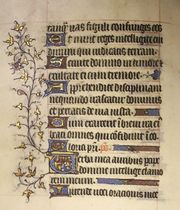 tanq̃ vas figuli confringes eos
Et nunc reges intelligite eru
dimini qui iudicatis terram
Servite domino in timore et ex
ultate ei cum tremore
Apprehendite disciplinam
nequando irascatur dominus
et pereatis de via iusta
Cum exarserit in brevi ira ei
beati omnes qui confidunt in eo
Gloria patri. ps
Verba mea auribus perci
domine intellige clamo
rem meum
Intende voci orationis mee